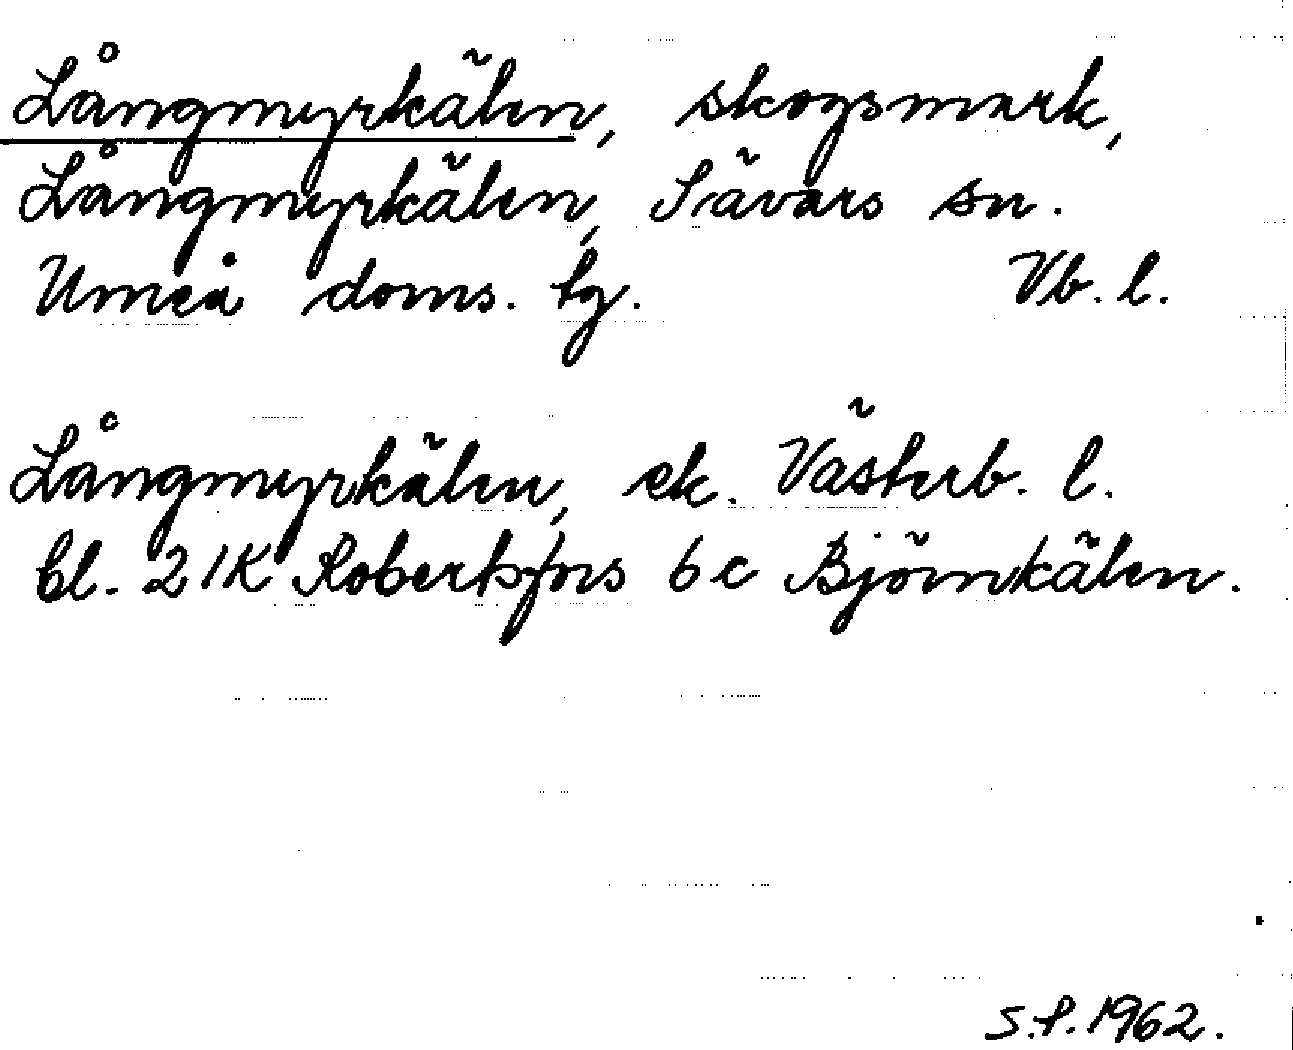 Långmyrkälen, skogsmark,
Långmyrkälen, Sävars sn.
Umeå doms. lg. Vb. l.
Långmyrkälen, ek. Västerb. l.
bl. 21K Robertsfors 6 c Björnkälen.
S.P. 1962.